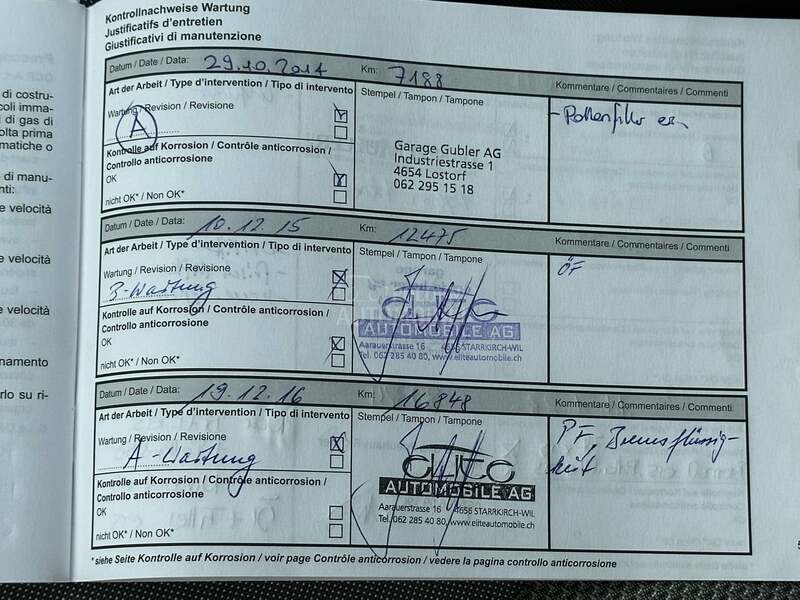 Kontrollnachweise Wartung
Justificatifs d'entretien
Giustificativi di manutenzione
Datum / Date / Data: 29.10.2014 Km: 7188
Art der Arbeit / Type d'intervention / Tipo di intervento
Stempel / Tampon / Tampone
Kommentare / Commentaires / Commenti
Wartung / Revision / Revisione
A
Kontrolle auf Korrosion / Contrôle anticorrosion /
Controllo anticorrosione
OK
nicht OK* / Non OK*
Garage Gubler AG
Industriestrasse 1
4654 Lostorf
062 295 15 18
- Pollenfilter
Datum / Date / Data: 10.12.15 Km: 12475
Art der Arbeit / Type d'intervention / Tipo di intervento
Stempel / Tampon / Tampone
Kommentare / Commentaires / Commenti
Wartung / Revision / Revisione
B-Wartung
Kontrolle auf Korrosion / Contrôle anticorrosion /
Controllo anticorrosione
OK
nicht OK* / Non OK*
AUTOMOBILE AG
Aarauerstrasse 16 4656 STARRKIRCH-WIL
Tel. 062 285 40 80, www.eliteautomobile.ch
ÖF
Datum / Date / Data: 19.12.16 Km: 16848
Art der Arbeit / Type d'intervention / Tipo di intervento
Stempel / Tampon / Tampone
Kommentare / Commentaires / Commenti
Wartung / Revision / Revisione
A-Wartung
Kontrolle auf Korrosion / Contrôle anticorrosion /
Controllo anticorrosione
OK
nicht OK* / Non OK*
elite
AUTOMOBILE AG
Aarauerstrasse 16 4656 STARRKIRCH-WIL
Tel. 062 285 40 80, www.eliteautomobile.ch
PF, Bremsflüssig-
keit
*siehe Seite Kontrolle auf Korrosion / voir page Contrôle anticorrosion / vedere la pagina controllo anticorrosione
di costru-
coli imma-
i di gas di
olta prima
matiche o
di manu-
nti:
e velocità
e velocità
e velocità
namento
rlo su ri-